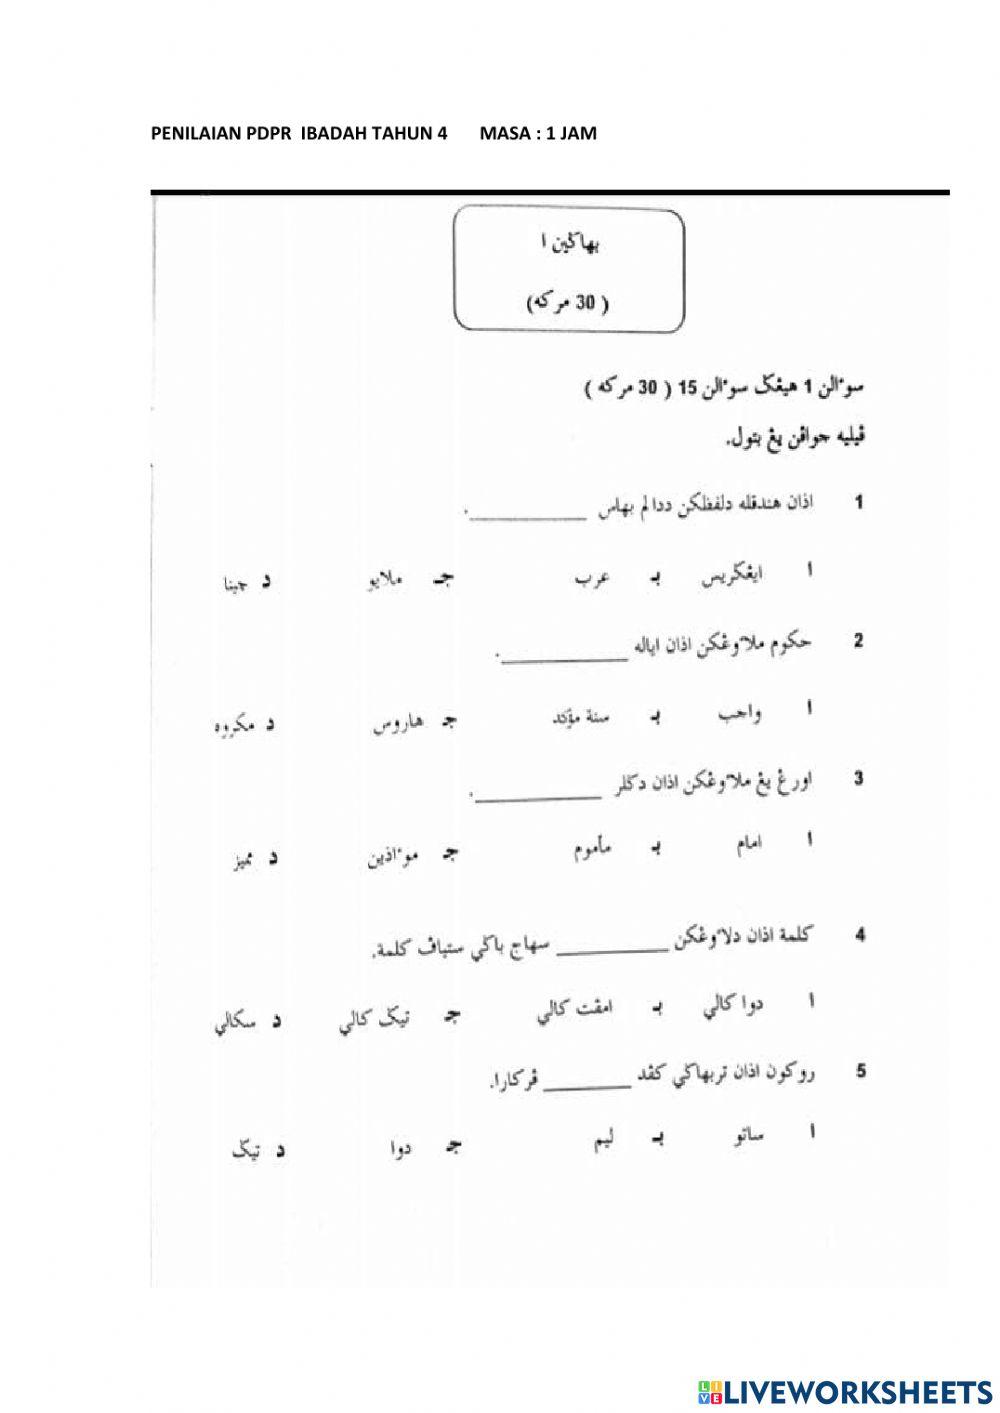 PENILAIAN PDPR IBADAH TAHUN 4 MASA : 1 JAM
بهاڬين ا
( 30 مركه)
سوءالن 1 هيڠݢ سوءالن 15 ( 30 مركه )
ڤيليه جواڤن يڠ بتول.
1 اذان هندقله دلفظكن ددالم بهاس ____________.
ا ايڠݢريس بـ عرب جـ ملايو د چينا
2 حكوم ملاوڠكن اذان اياله ____________.
ا واجب بـ سنة مؤكد جـ هاروس د مكروه
3 اورڠ يڠ ملاوڠكن اذان دݢلر ____________.
ا امام بـ مأموم جـ موءاذين د مميز
4 كلمة اذان دلاوڠكن ____________ سهاج باݢي ستياڤ كلمة.
ا دوا كالي بـ امڤت كالي جـ تيݢ كالي د سكالي
5 روكون اذان تربهاݢي كڤد ____________ ڤركارا.
ا ساتو بـ ليم جـ دوا د تيݢ
LIVE LIVEWORKSHEETS